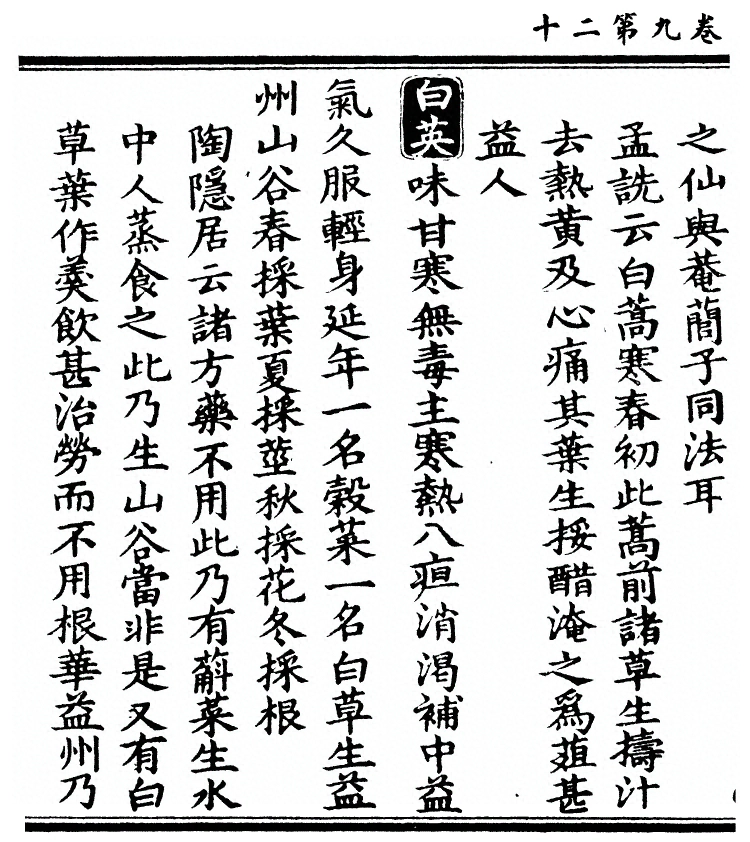 卷九第二十
之仙與菴䕡子同法耳
孟詵云白蒿寒春初此蒿前諸草生擣汁
去熱黃及心痛其葉生挼醋淹之爲葅甚
益人
白英味甘寒無毒主寒熱八疸消渴補中益
氣久服輕身延年一名穀菜一名白草生益
州山谷春採葉夏採莖秋採花冬採根
陶隱居云諸方藥不用此乃有蔛菜生水
中人蒸食之此乃生山谷當非是又有白
草葉作羹飲甚治勞而不用根華益州乃